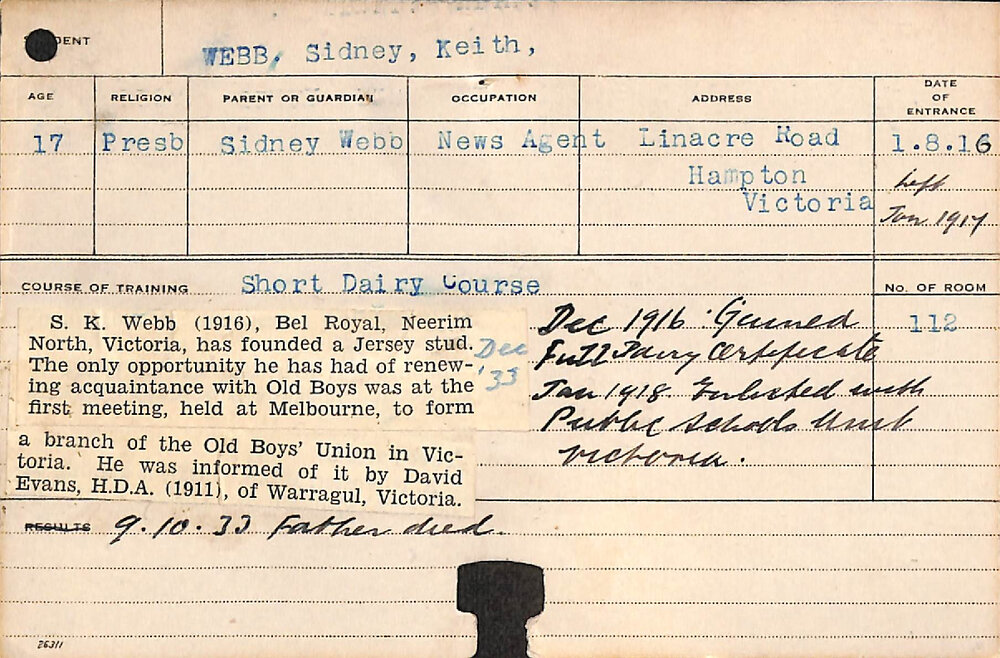 WEBB, Sidney, Keith,
AGE RELIGION PARENT OR GUARDIAN OCCUPATION ADDRESS DATE OF ENTRANCE
17 Presb Sidney Webb News Agent Linacre Road 1.8.16
Hampton left
Victoria Jan 1917
COURSE OF TRAINING Short Dairy Course No. OF ROOM
112
S. K. Webb (1916), Bel Royal, Neerim
North, Victoria, has founded a Jersey stud.
The only opportunity he has had of renew-
ing acquaintance with Old Boys was at the
first meeting, held at Melbourne, to form
a branch of the Old Boys' Union in Vic-
toria. He was informed of it by David
Evans, H.D.A. (1911), of Warragul, Victoria.
Dec
'33
Dec 1916. Gained
Full Dairy Certificate
Jan 1918. Enlisted with
Public Schools Unit
Victoria.
RESULTS 9.10.33 Father died.
26311